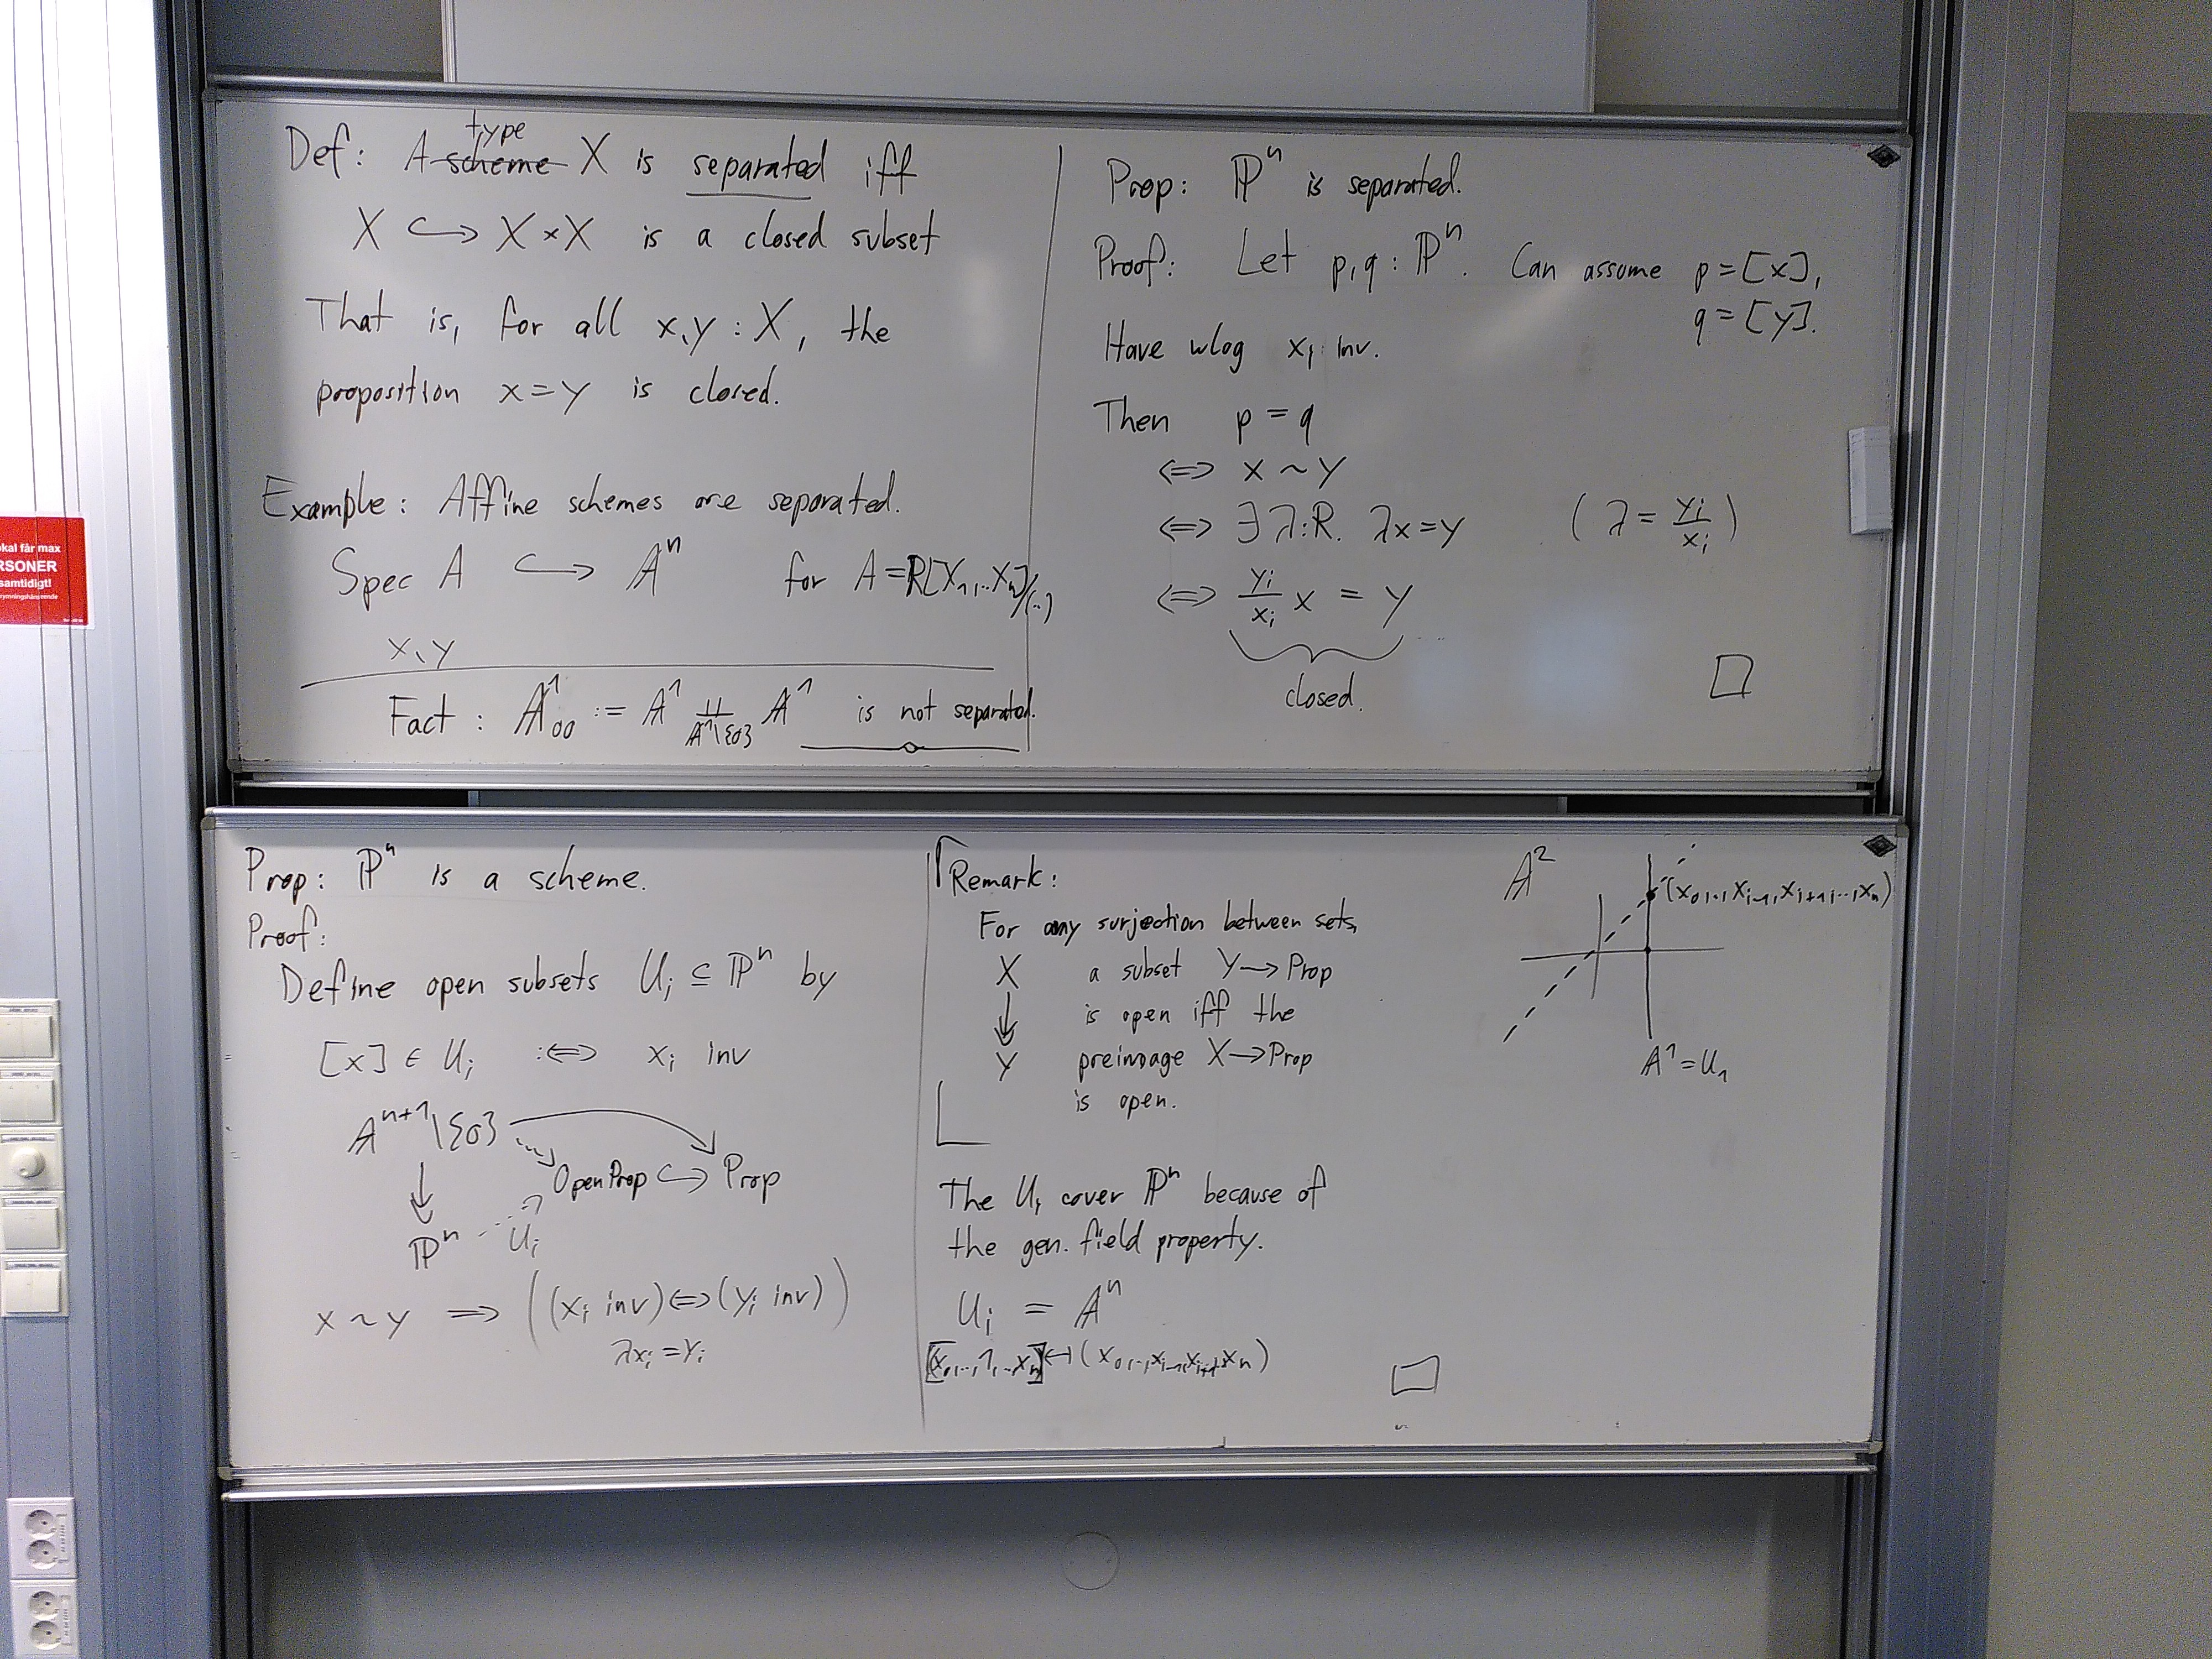 Def: A scheme type X is separated iff
X ↪ X × X is a closed subset
That is, for all x,y : X, the
proposition x = y is closed.
Example: Affine schemes are separated.
Spec A ↪ 𝔸ⁿ for A = R[X₁,..Xₙ]/(..)
x,y
Fact: 𝔸¹₀₀ := 𝔸¹ ⨿_{𝔸¹\{0}} 𝔸¹ is not separated.
Prop: ℙⁿ is separated.
Proof: Let p,q : ℙⁿ. Can assume p = [x],
q = [y].
Have wlog xᵢ inv.
Then p = q
⇔ x ~ y
⇔ ∃ λ:R. λx = y (λ = yᵢ/xᵢ)
⇔ yᵢ/xᵢ x = y
closed.
□
Prop: ℙⁿ is a scheme.
Proof:
Define open subsets Uᵢ ⊆ ℙⁿ by
[x] ∈ Uᵢ :⇔ xᵢ inv
𝔸ⁿ⁺¹\{0}
OpenProp ↪ Prop
ℙⁿ Uᵢ
x ~ y ⇒ ((xᵢ inv) ⇔ (yᵢ inv))
λxᵢ = yᵢ
Remark:
For any surjection between sets,
X a subset Y → Prop
↡ is open iff the
Y preimage X → Prop
is open.
The Uᵢ cover ℙⁿ because of
the gen. field property.
Uᵢ = 𝔸ⁿ
[x₀,..,1,..,xₙ] ↤ (x₀,..,xᵢ₋₁,xᵢ₊₁,..xₙ)
□
𝔸²
(x₀,..,xᵢ₋₁,xᵢ₊₁,...,xₙ)
𝔸¹ = U₁
okal får max
RSONER
samtidigt!